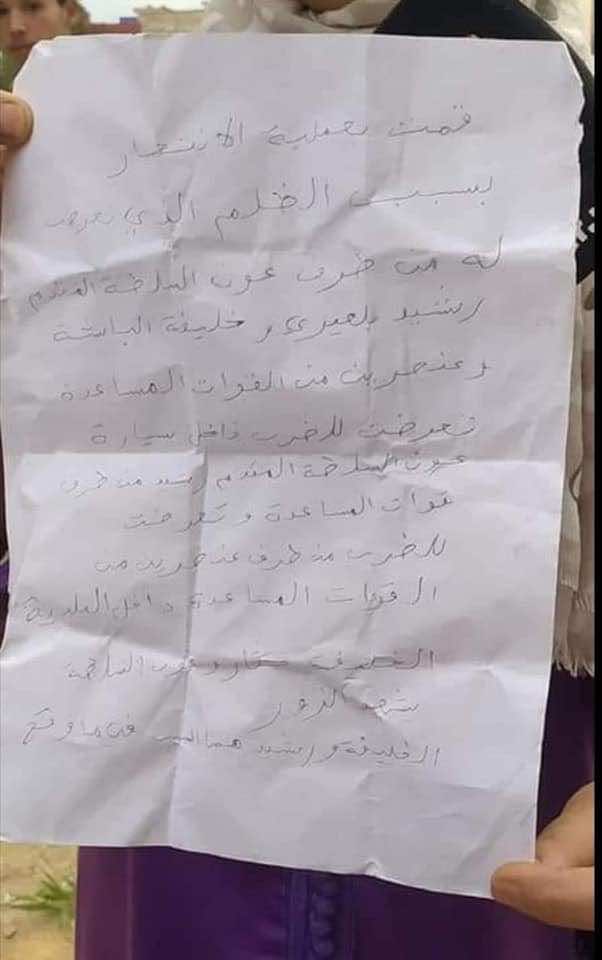 قمت بعملية الانتحار
بسبب الظلم الذي تعرضت
له من طرف عون السلطة المقدم
رشيد و خليفة الباشة
وعنصرين من القوات المساعدة
تعرضت للضرب داخل سيارة
عون السلطة المقدم رشيد من طرف
قوات المساعدة و تعرضت
للضرب من طرف عنصرين من
القوات المساعدة داخل البلدية
الخليفة وعون السلطة
شهد الزور
الخليفة و رشيد هما السبب في ما وقع